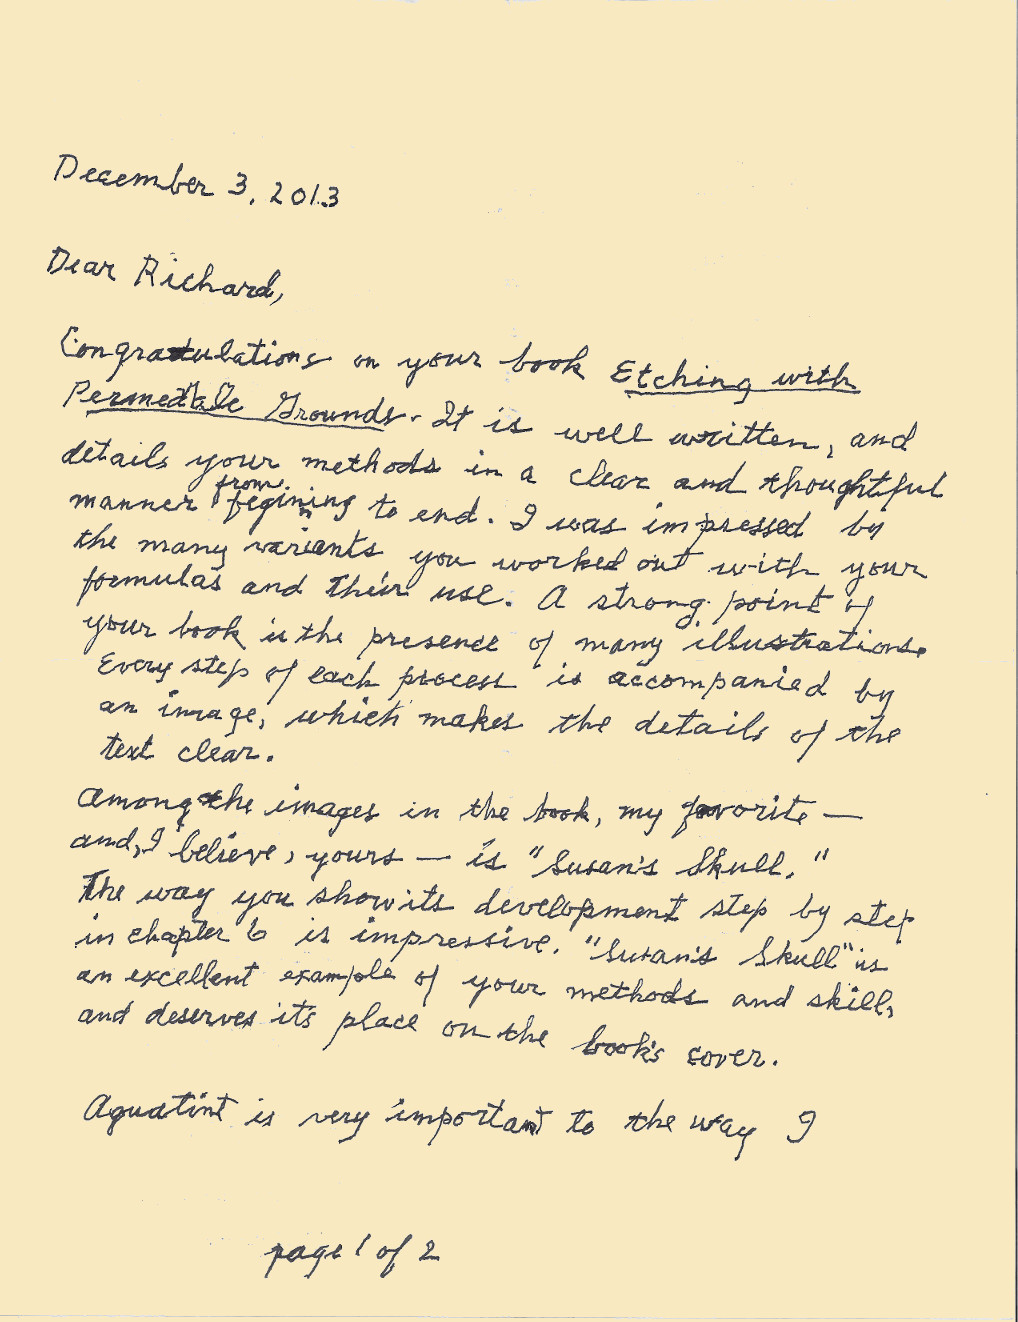 December 3, 2013
Dear Richard,
Congratulations on your book Etching with
Permeable Grounds. It is well written, and
details your methods in a clear and thoughtful
manner from begining to end. I was impressed by
the many variants you worked out with your
formulas and their use. A strong point of
your book is the presence of many illustrations.
Every step of each process is accompanied by
an image, which makes the details of the
text clear.
Among the images in the book, my favorite —
and, I believe, yours — is "Susan's Skull."
The way you show its development step by step
in chapter 6 is impressive. "Susan's Skull" is
an excellent example of your methods and skill,
and deserves it's place on the book's cover.
Aquatint is very important to the way I
page 1 of 2